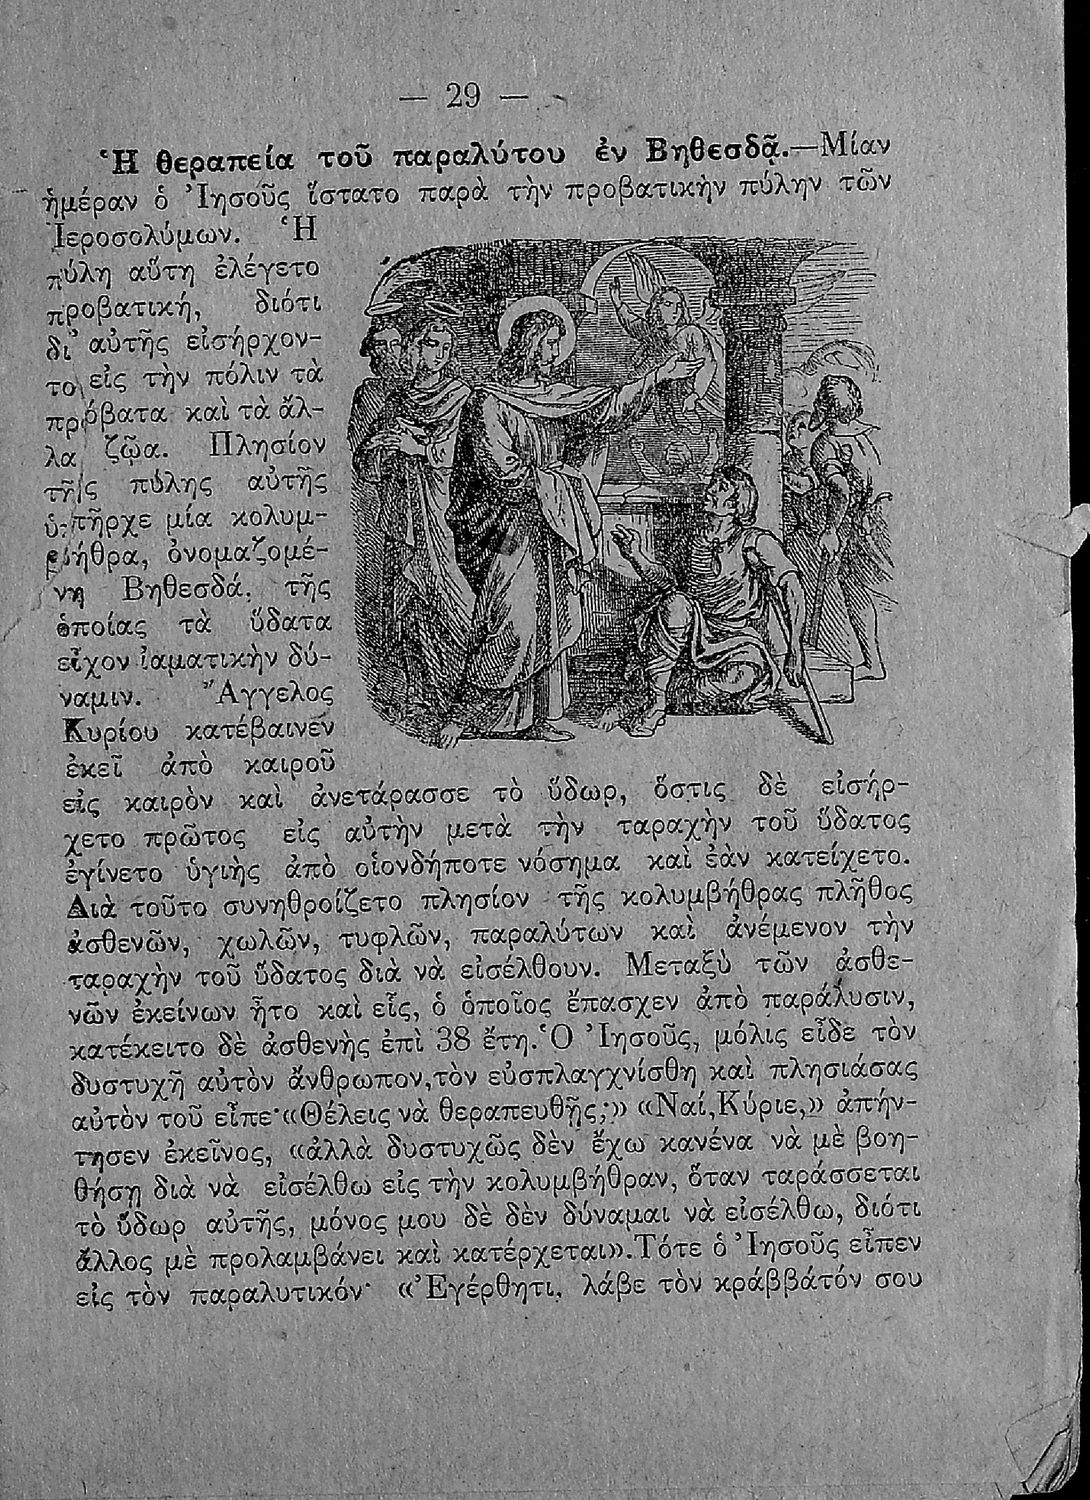 — 29 —
Ἡ θεραπεία τοῦ παραλύτου ἐν Βηθεσδᾷ.—Μίαν
ἡμέραν ὁ Ἰησοῦς ἵστατο παρὰ τὴν προβατικὴν πύλην τῶν
Ἱεροσολύμων. Ἡ
πύλη αὕτη ἐλέγετο
προβατική, διότι
δι' αὐτῆς εἰσήρχον-
το εἰς τὴν πόλιν τὰ
πρόβατα καὶ τὰ ἄλ-
λα ζῷα. Πλησίον
τῆς πύλης αὐτῆς
ὑπῆρχε μία κολυμ-
βήθρα, ὀνομαζομέ-
νη Βηθεσδά, τῆς
ὁποίας τὰ ὕδατα
εἶχον ἰαματικὴν δύ-
ναμιν. Ἄγγελος
Κυρίου κατέβαινεν
ἐκεῖ ἀπὸ καιροῦ
εἰς καιρὸν καὶ ἀνετάρασσε τὸ ὕδωρ, ὅστις δὲ εἰσήρ-
χετο πρῶτος εἰς αὐτὴν μετὰ τὴν ταραχὴν τοῦ ὕδατος
ἐγίνετο ὑγιὴς ἀπὸ οἱονδήποτε νόσημα καὶ ἐὰν κατείχετο.
Διὰ τοῦτο συνηθροίζετο πλησίον τῆς κολυμβήθρας πλῆθος
ἀσθενῶν, χωλῶν, τυφλῶν, παραλύτων καὶ ἀνέμενον τὴν
ταραχὴν τοῦ ὕδατος διὰ νὰ εἰσέλθουν. Μεταξὺ τῶν ἀσθε-
νῶν ἐκείνων ἦτο καὶ εἷς, ὁ ὁποῖος ἔπασχεν ἀπὸ παράλυσιν,
κατέκειτο δὲ ἀσθενὴς ἐπὶ 38 ἔτη. Ὁ Ἰησοῦς, μόλις εἶδε τὸν
δυστυχῆ αὐτὸν ἄνθρωπον, τὸν εὐσπλαγχνίσθη καὶ πλησιάσας
αὐτὸν τοῦ εἶπε· «Θέλεις νὰ θεραπευθῇς;» «Ναί, Κύριε,» ἀπήν-
τησεν ἐκεῖνος, «ἀλλὰ δυστυχῶς δὲν ἔχω κανένα νὰ μὲ βοη-
θήσῃ διὰ νὰ εἰσέλθω εἰς τὴν κολυμβήθραν, ὅταν ταράσσεται
τὸ ὕδωρ αὐτῆς, μόνος μου δὲ δὲν δύναμαι νὰ εἰσέλθω, διότι
ἄλλος μὲ προλαμβάνει καὶ κατέρχεται». Τότε ὁ Ἰησοῦς εἶπεν
εἰς τὸν παραλυτικόν· «Ἐγέρθητι, λάβε τὸν κράββατόν σου